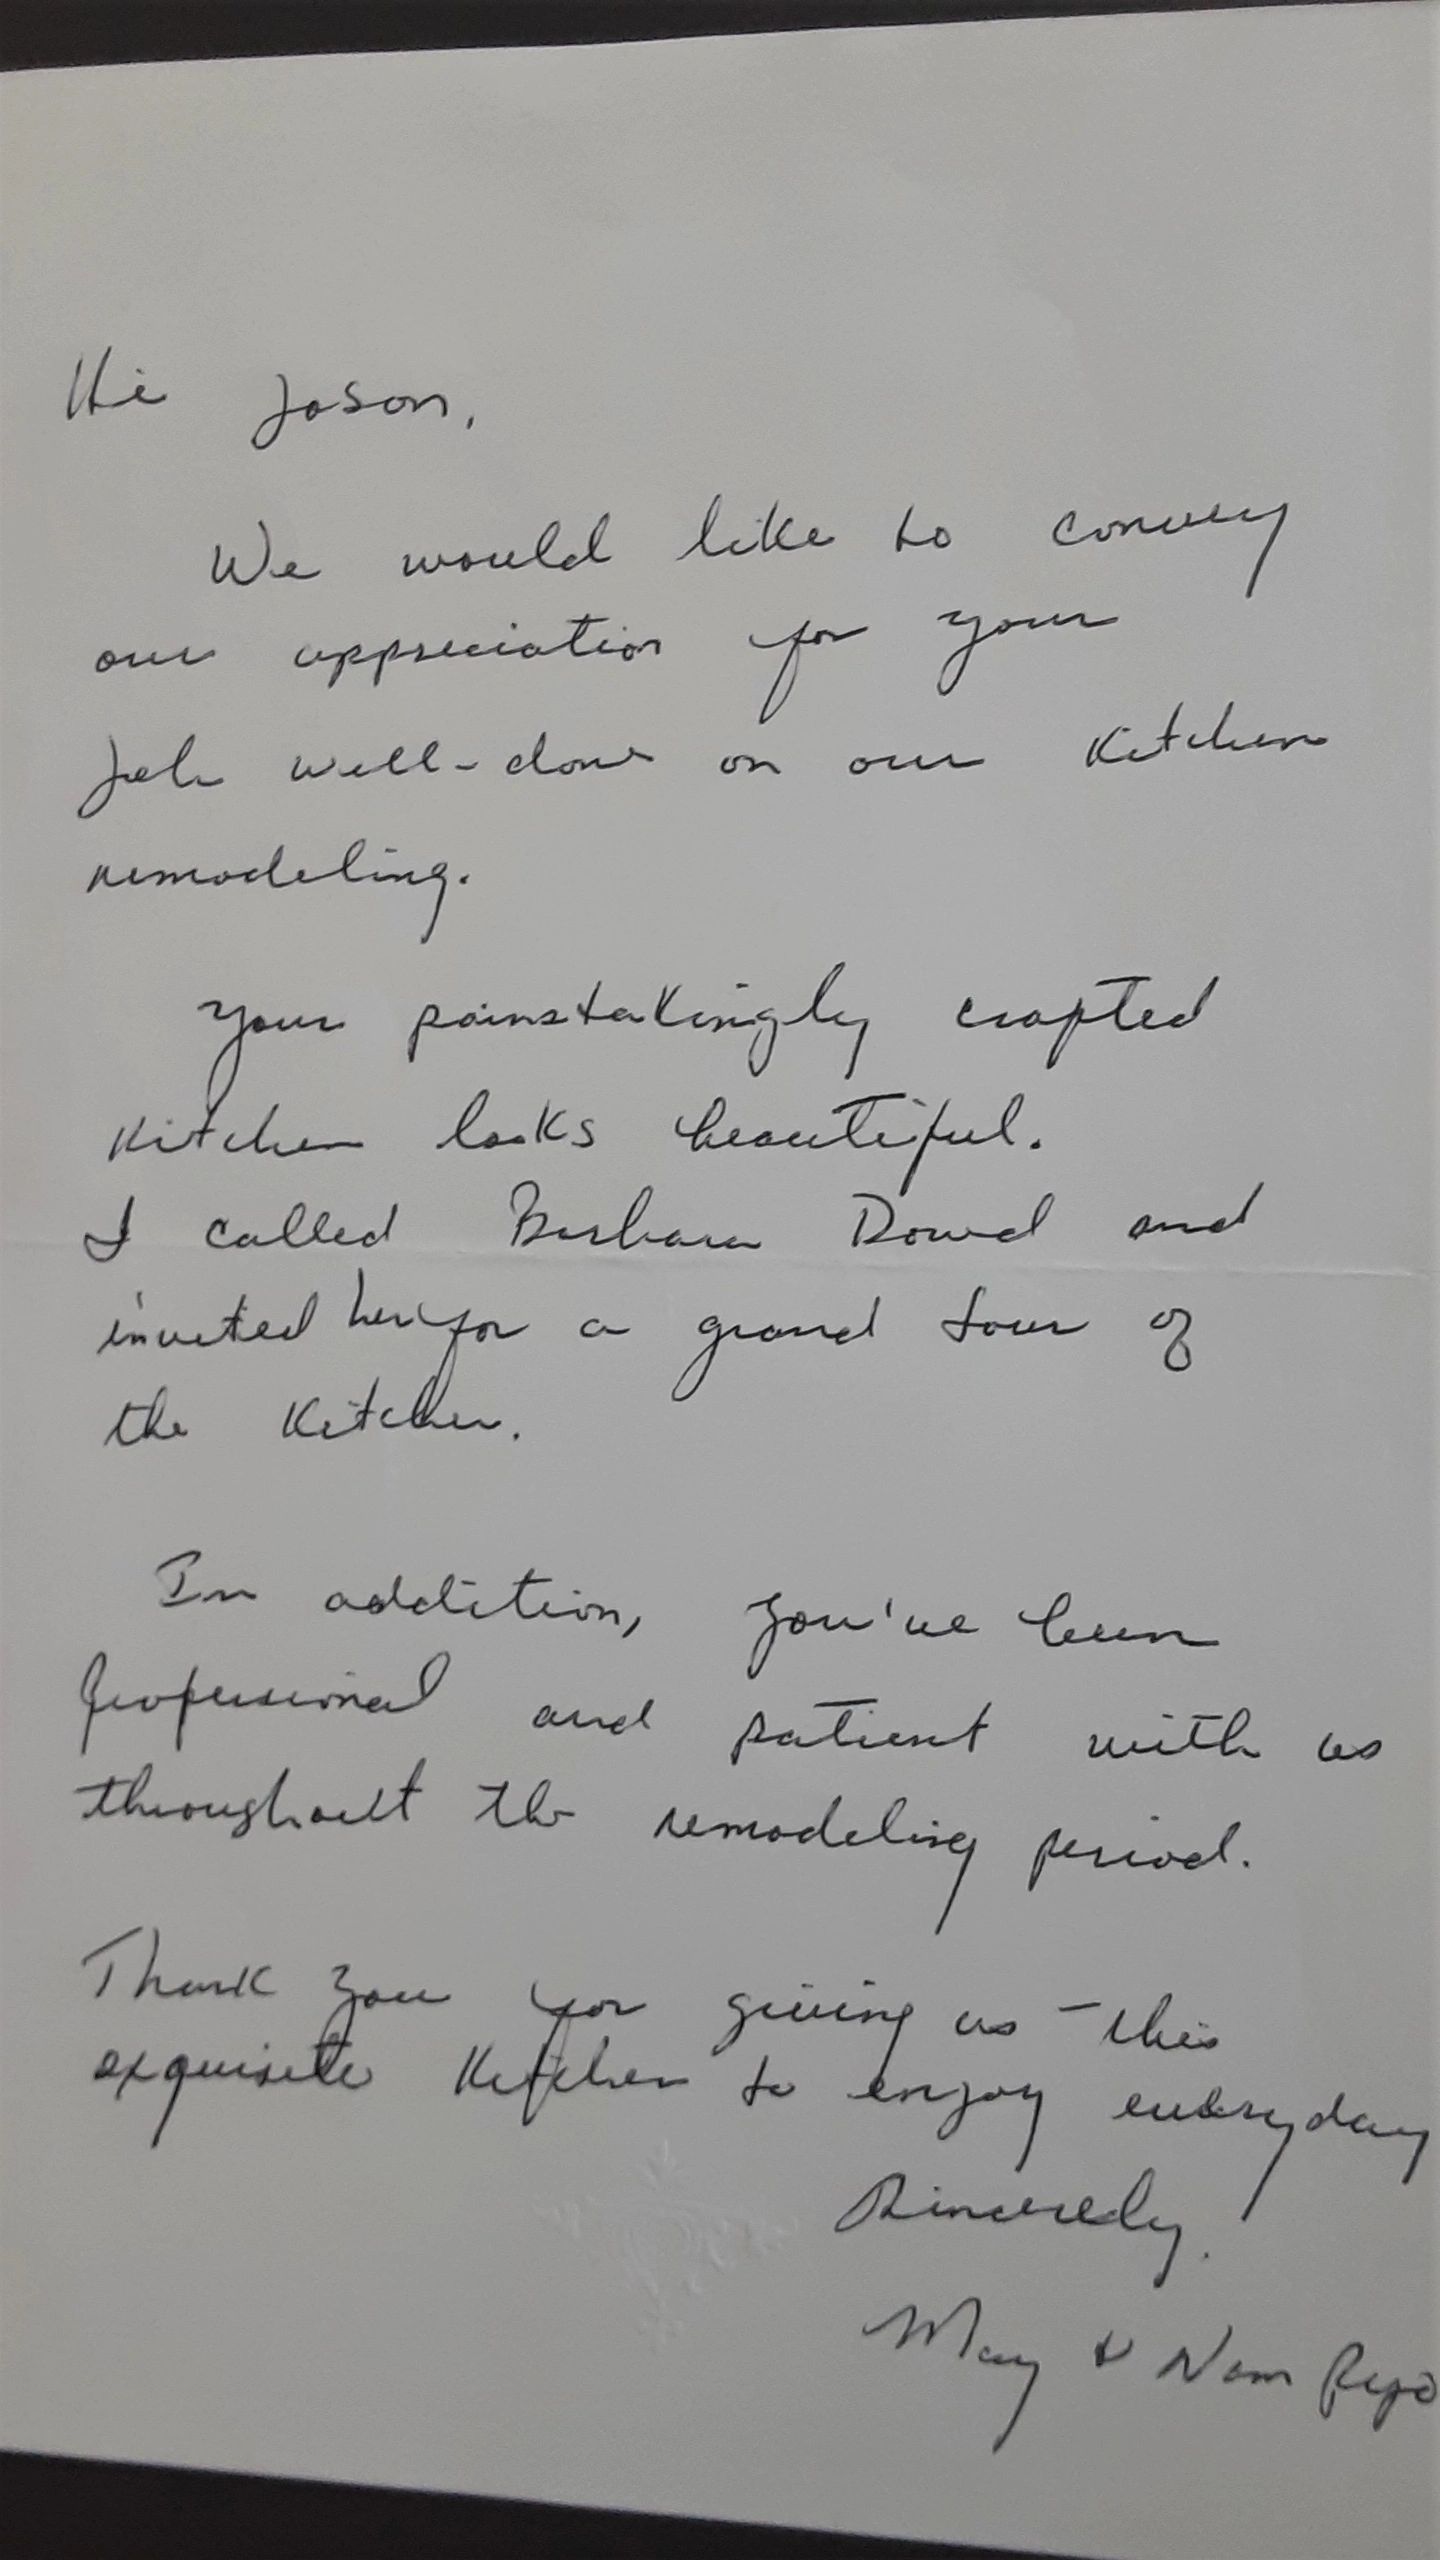 Hi Jason,
We would like to convey
our appreciation for your
job well-done on our Kitchen
remodeling.
Your painstakingly crafted
Kitchen looks beautiful.
I called Barbara Dowd and
invited her for a grand tour of
the Kitchen.
In addition, you've been
professional and patient with us
throughout the remodeling period.
Thank you for giving us this
exquisite Kitchen to enjoy everyday
Sincerely,
May & Nam